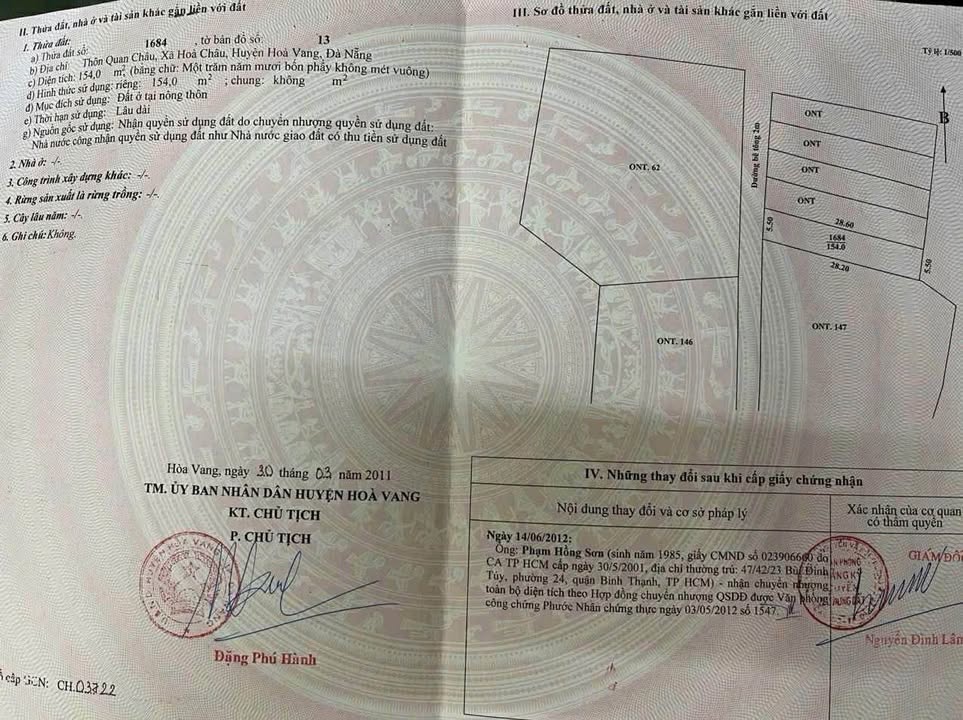 II. Thửa đất, nhà ở và tài sản khác gắn liền với đất
1. Thửa đất:
a) Thửa đất số: 1684 , tờ bản đồ số: 13
b) Địa chỉ: Thôn Quan Châu, Xã Hoà Châu, Huyện Hoà Vang, Đà Nẵng
c) Diện tích: 154,0 m², (bằng chữ: Một trăm năm mươi bốn phẩy không mét vuông)
d) Hình thức sử dụng: riêng: 154,0 m² ; chung: không m²
đ) Mục đích sử dụng: Đất ở tại nông thôn
e) Thời hạn sử dụng: Lâu dài
g) Nguồn gốc sử dụng: Nhận quyền sử dụng đất do chuyển nhượng quyền sử dụng đất:
Nhà nước công nhận quyền sử dụng đất như Nhà nước giao đất có thu tiền sử dụng đất
2. Nhà ở: -/-.
3. Công trình xây dựng khác: -/-.
4. Rừng sản xuất là rừng trồng: -/-.
5. Cây lâu năm: -/-.
6. Ghi chú: Không.
Hòa Vang, ngày 30 tháng 03 năm 2011
TM. ỦY BAN NHÂN DÂN HUYỆN HOÀ VANG
KT. CHỦ TỊCH
P. CHỦ TỊCH
Đặng Phú Hành
cấp GCN: CH.03722
III. Sơ đồ thửa đất, nhà ở và tài sản khác gắn liền với đất
Tỷ lệ: 1/500
B
ONT
ONT
ONT
ONT
ONT. 62
Đường bê tông 2m
5.50
28.60
1684
154.0
28.20
5.50
ONT. 147
ONT. 146
IV. Những thay đổi sau khi cấp giấy chứng nhận
Nội dung thay đổi và cơ sở pháp lý
Xác nhận của cơ quan
có thẩm quyền
Ngày 14/06/2012:
Ông: Phạm Hồng Sơn (sinh năm 1985, giấy CMND số 023906660 do
CA TP HCM cấp ngày 30/5/2001, địa chỉ thường trú: 47/42/23 Bùi Đình
Túy, phường 24, quận Bình Thạnh, TP HCM) - nhận chuyển nhượng
toàn bộ diện tích theo Hợp đồng chuyển nhượng QSDĐ được Văn phòng
công chứng Phước Nhân chứng thực ngày 03/05/2012 số 1547.
GIÁM ĐỐ
Nguyễn Đình Lân